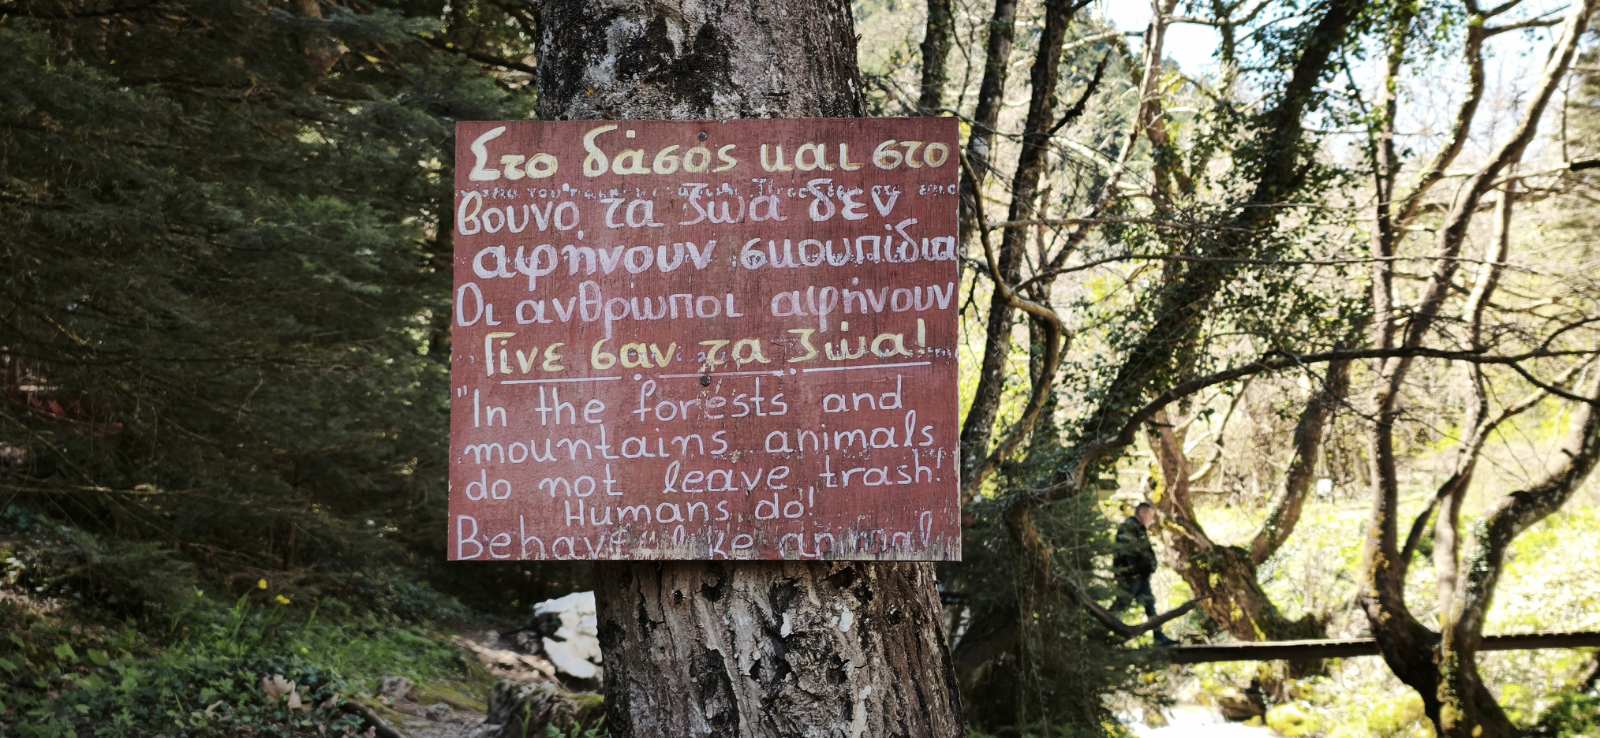 Στο δάσος και στο
βουνό, τα ζώα δεν
αφήνουν σκουπίδια
Οι ανθρωποι αφήνουν
Γίνε σαν τα ζώα!
"In the forests and
mountains animals
do not leave trash!
Humans do!
Behave like animal